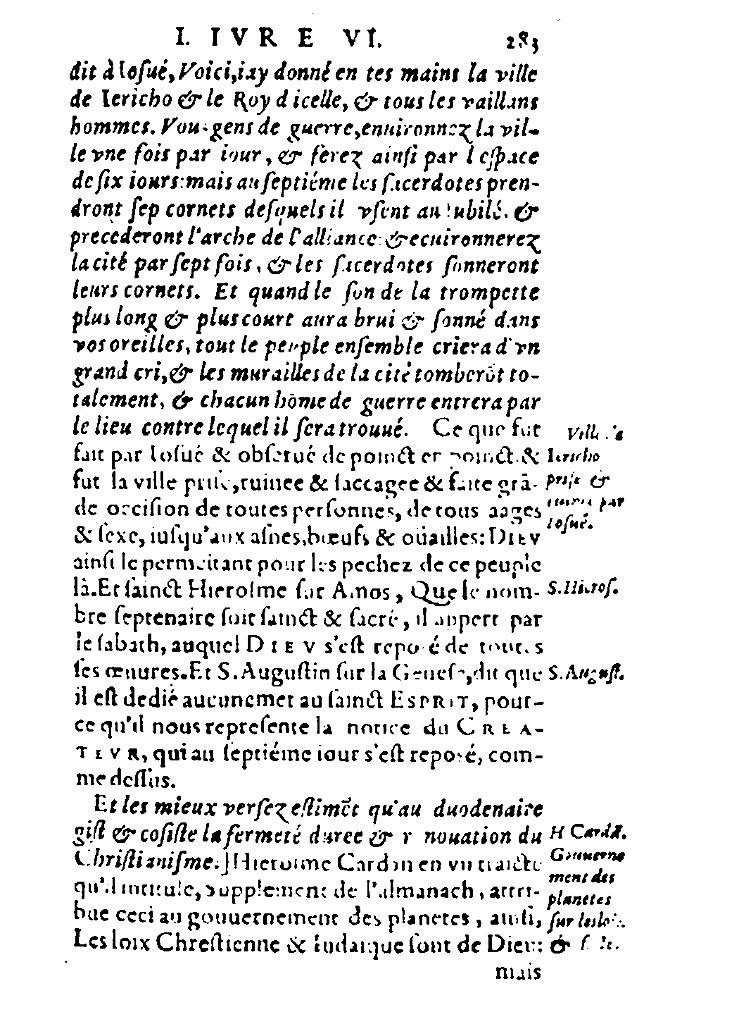 LIVRE VI. 283
dit à Iosué, Voici, i'ay donné en tes mains la ville
de Iericho & le Roy d'icelle, & tous les vaillans
hommes. Vous gens de guerre, enuironnez la vil-
le vne fois par iour, & ferez ainsi par l'espace
de six iours: mais au septiéme les sacerdotes pren-
dront sep cornets desquels il vsent au Iubilé. &
precederont l'arche de l'alliance: & ecuironnerez
la cité par sept fois, & les sacerdotes sonneront
leurs cornets. Et quand le son de la trompette
plus long & plus court aura brui & sonné dans
vos oreilles, tout le peuple ensemble criera d'vn
grand cri, & les murailles de la cité tomberõt to-
talement, & chacun hõme de guerre entrera par
le lieu contre lequel il sera trouué. Ce que fut
fait par Iosué & obserué de poinct en poinct. &
fut la ville prise, ruinee & saccagee & faite grã-
de occision de toutes personnes, de tous aages
& sexe, iusqu'aux asnes, bœufs & oüailles: DIEV
ainsi le permettant pour les pechez de ce peuple
là. Et sainct Hierosme sur Amos, Que le nom-
bre septenaire soit sainct & sacré, il appert par
le sabath, auquel DIEV s'est reposé de toutes
ses œuures. Et S. Augustin sur la Genese, dit que
il est dedié aucunemẽt au sainct ESPRIT, pour-
ce qu'il nous represente la notice du CREA-
TEVR, qui au septiéme iour s'est reposé, com-
me dessus.
Et les mieux versez estimẽt qu'au duodenaire
gist & cõsiste la fermeté duree & renouation du
Christianisme.] Hierome Cardan en vn traicté
qu'il intitule, Supplement de l'almanach, attri-
bue ceci au gouuernement des planetes, ainsi,
Les loix Chrestienne & Iudaique sont de Dieu:
mais
Ville de
Iericho
prise &
ruinee par
Iosué.
S. Hieros.
S. August.
H Cardã.
Gouuerne
ment des
planetes
sur les loix.
&